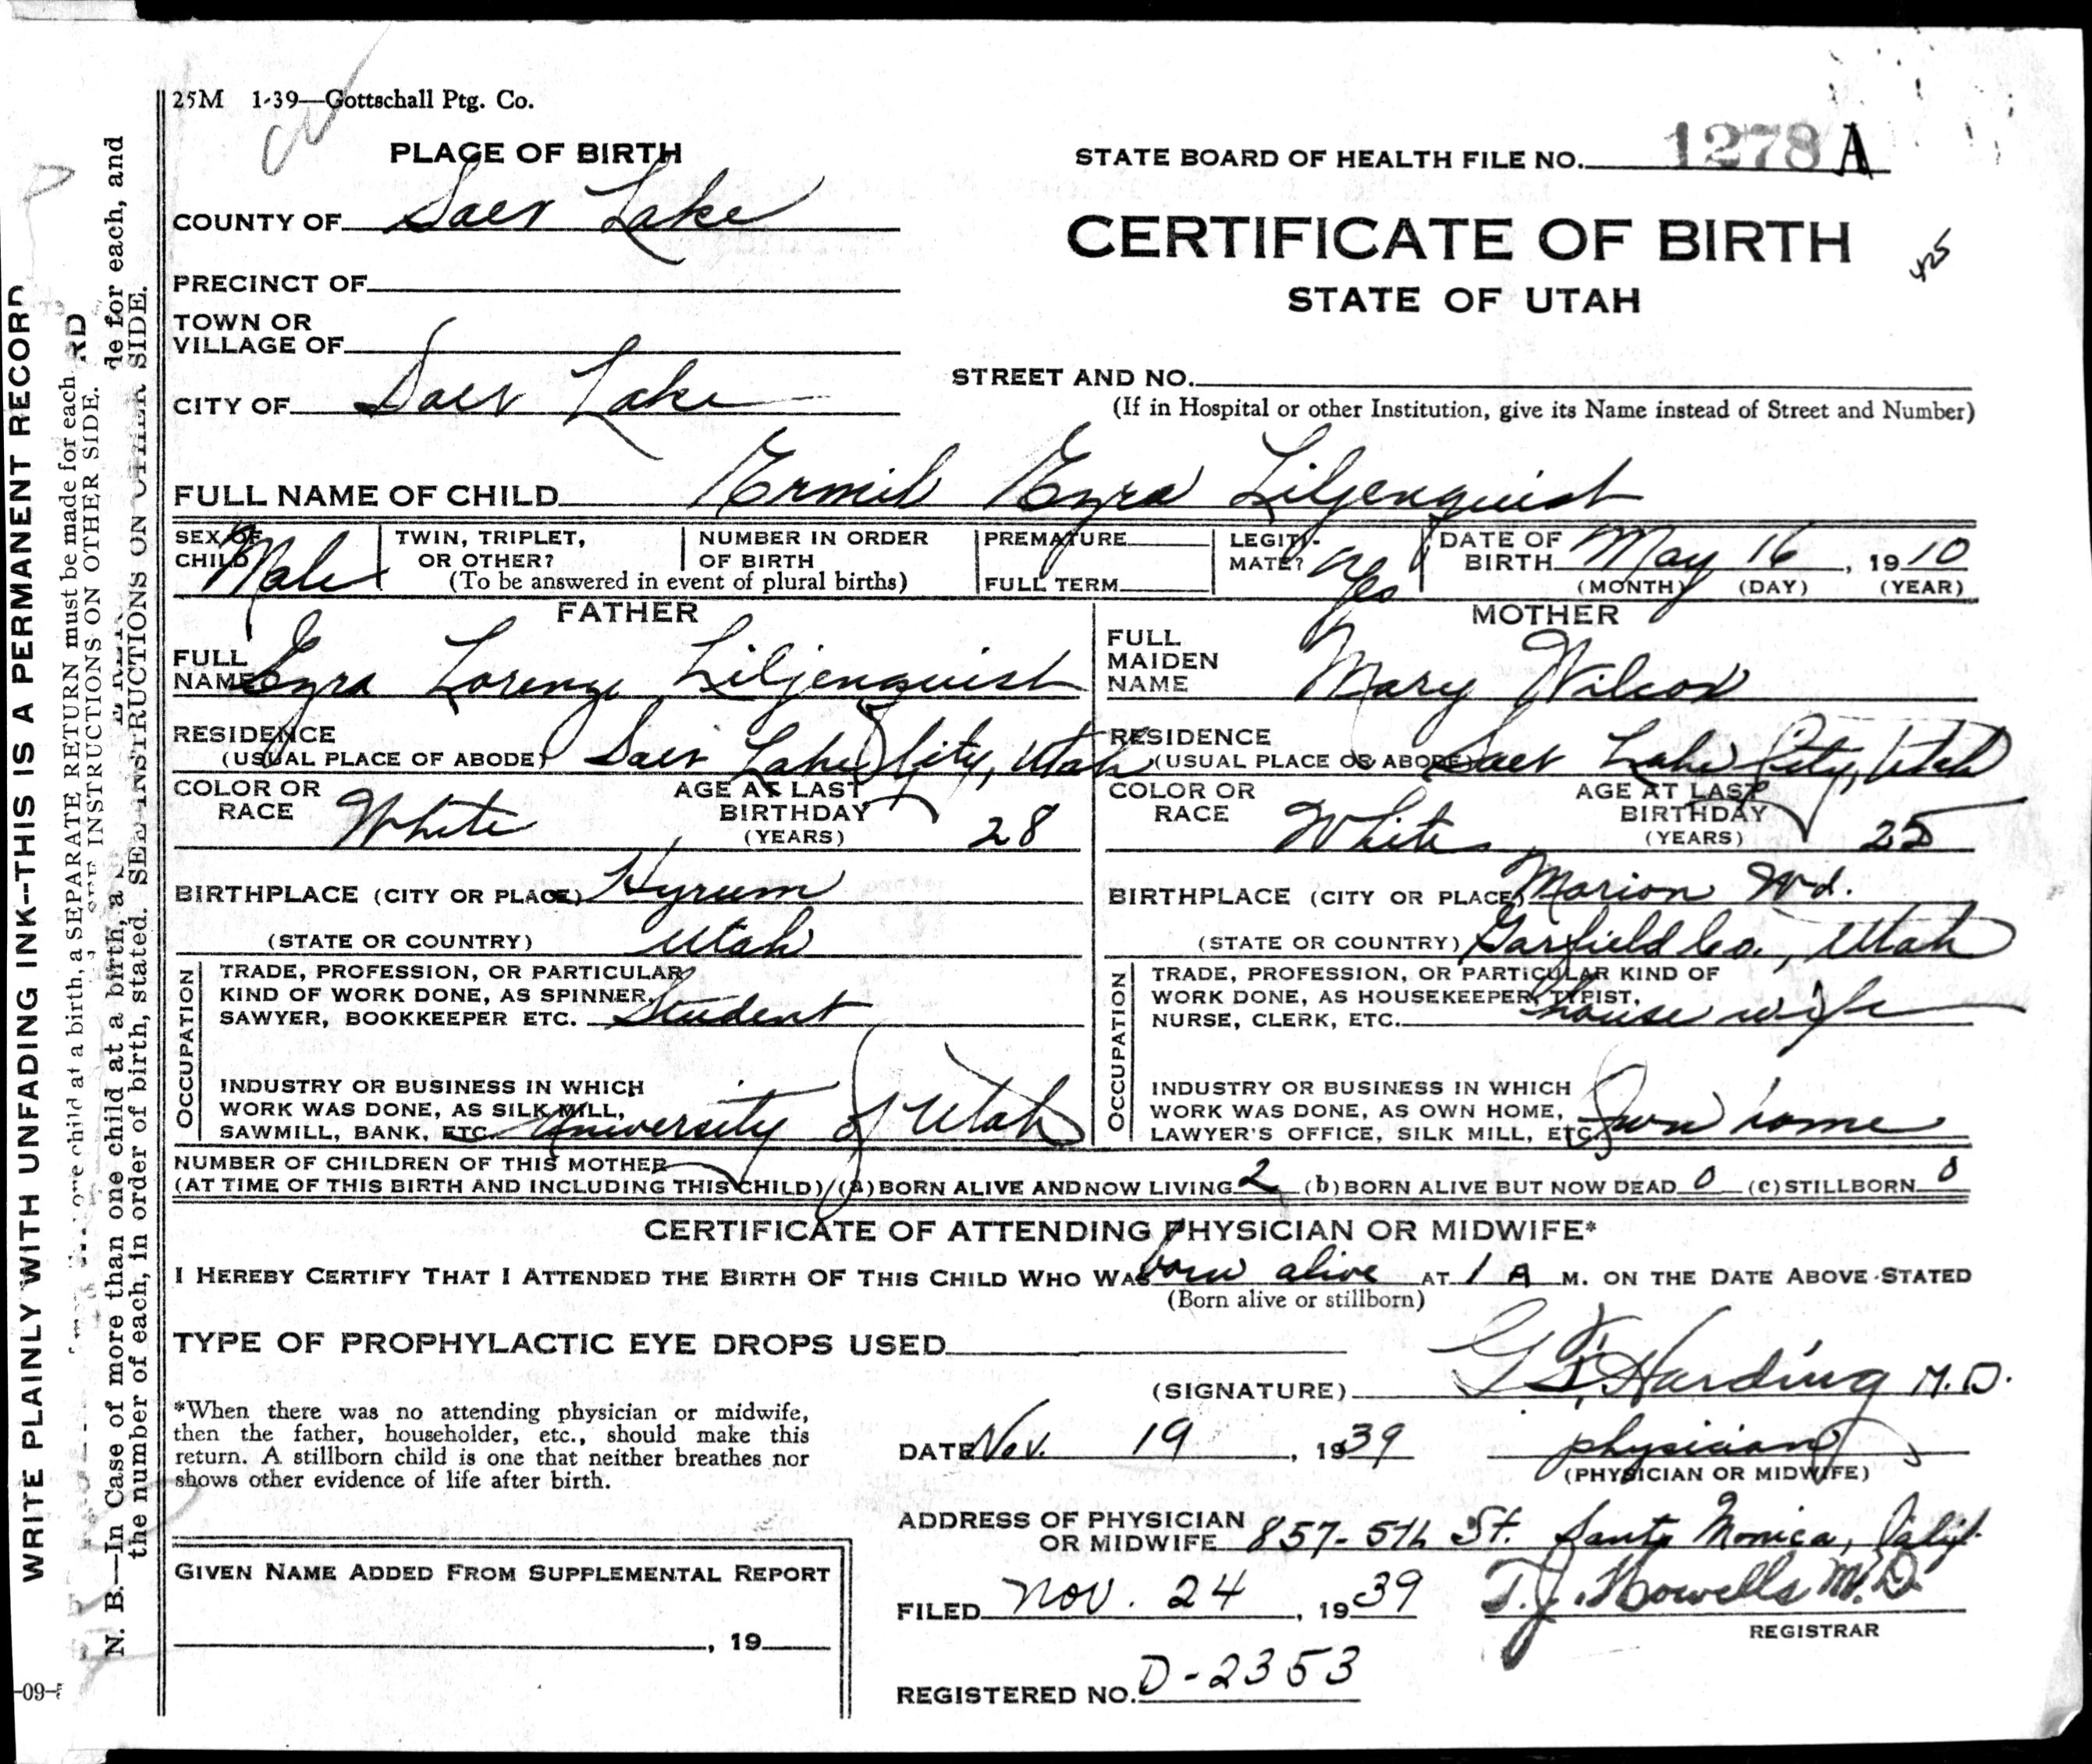 25M 1-39—Gottschall Ptg. Co.
PLACE OF BIRTH
STATE BOARD OF HEALTH FILE NO. 1278 A
COUNTY OF Salt Lake
CERTIFICATE OF BIRTH
425
PRECINCT OF
STATE OF UTAH
TOWN OR
VILLAGE OF
STREET AND NO.
CITY OF Salt Lake
(If in Hospital or other Institution, give its Name instead of Street and Number)
FULL NAME OF CHILD Ermil Ezra Liljenquist
SEX OF CHILD Male
TWIN, TRIPLET, OR OTHER?
NUMBER IN ORDER OF BIRTH
(To be answered in event of plural births)
PREMATURE
FULL TERM
LEGITI-MATE? Yes
DATE OF BIRTH May 16, 1910
(MONTH) (DAY) (YEAR)
FATHER
FULL NAME Ezra Lorenzo Liljenquist
RESIDENCE
(USUAL PLACE OF ABODE) Salt Lake City, Utah
COLOR OR RACE White
AGE AT LAST BIRTHDAY (YEARS) 28
BIRTHPLACE (CITY OR PLACE) Hyrum
(STATE OR COUNTRY) Utah
OCCUPATION
TRADE, PROFESSION, OR PARTICULAR
KIND OF WORK DONE, AS SPINNER,
SAWYER, BOOKKEEPER ETC. Student
INDUSTRY OR BUSINESS IN WHICH
WORK WAS DONE, AS SILK MILL,
SAWMILL, BANK, ETC. University of Utah
MOTHER
FULL MAIDEN NAME Mary Wilcox
RESIDENCE
(USUAL PLACE OF ABODE) Salt Lake City, Utah
COLOR OR RACE White
AGE AT LAST BIRTHDAY (YEARS) 25
BIRTHPLACE (CITY OR PLACE) Marion Wd.
(STATE OR COUNTRY) Garfield Co., Utah
OCCUPATION
TRADE, PROFESSION, OR PARTICULAR KIND OF
WORK DONE, AS HOUSEKEEPER, TYPIST,
NURSE, CLERK, ETC. house wife
INDUSTRY OR BUSINESS IN WHICH
WORK WAS DONE, AS OWN HOME,
LAWYER'S OFFICE, SILK MILL, ETC. Own home
NUMBER OF CHILDREN OF THIS MOTHER
(AT TIME OF THIS BIRTH AND INCLUDING THIS CHILD) (a) BORN ALIVE AND NOW LIVING 2 (b) BORN ALIVE BUT NOW DEAD 0 (c) STILLBORN 0
CERTIFICATE OF ATTENDING PHYSICIAN OR MIDWIFE*
I HEREBY CERTIFY THAT I ATTENDED THE BIRTH OF THIS CHILD WHO WAS born alive AT 1 A M. ON THE DATE ABOVE STATED
(Born alive or stillborn)
TYPE OF PROPHYLACTIC EYE DROPS USED
(SIGNATURE) Harding M.D.
*When there was no attending physician or midwife,
then the father, householder, etc., should make this
return. A stillborn child is one that neither breathes nor
shows other evidence of life after birth.
DATE Nov. 19, 1939 physician
(PHYSICIAN OR MIDWIFE)
ADDRESS OF PHYSICIAN
OR MIDWIFE 857-5th St. Santa Monica, Calif.
GIVEN NAME ADDED FROM SUPPLEMENTAL REPORT
, 19
FILED Nov. 24, 1939 T.J. Howells M.D.
REGISTRAR
REGISTERED NO. D-2353
WRITE PLAINLY WITH UNFADING INK--THIS IS A PERMANENT RECORD
child at a birth, a SEPARATE RETURN must be made for each
INSTRUCTIONS ON OTHER SIDE.
N. B.—In Case of more than one child at a birth, a de for each, and
the number of each, in order of birth, stated. SEE INSTRUCTIONS ON OTHER SIDE.
-09-